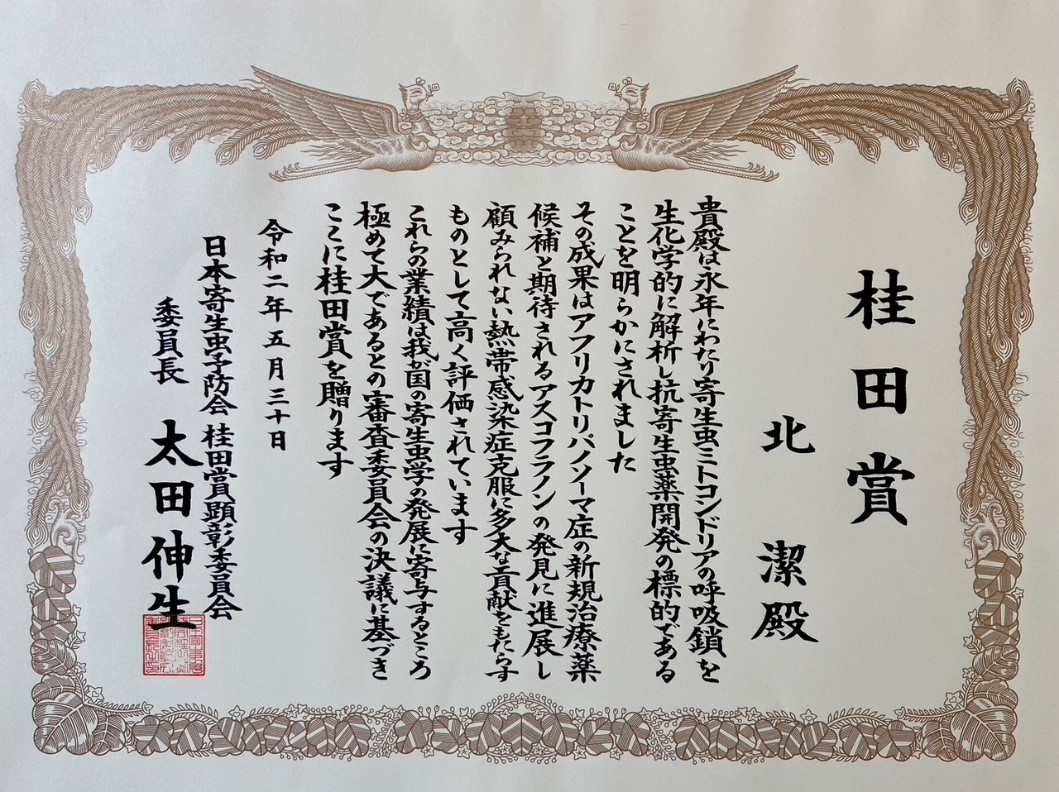 桂田賞
北 潔 殿
貴殿は永年にわたり寄生虫ミトコンドリアの呼吸鎖を
生化学的に解析し抗寄生虫薬開発の標的である
ことを明らかにされました
その成果はアフリカトリパノソーマ症の新規治療薬
候補と期待されるアスコフラノンの発見に進展し
顧みられない熱帯感染症克服に多大な貢献をもたらす
ものとして高く評価されています
これらの業績は我が国の寄生虫学の発展に寄与するところ
極めて大であるとの審査委員会の決議に基づき
ここに桂田賞を贈ります
令和二年五月三十日
日本寄生虫予防会 桂田賞顕彰委員会
委員長 太田伸生